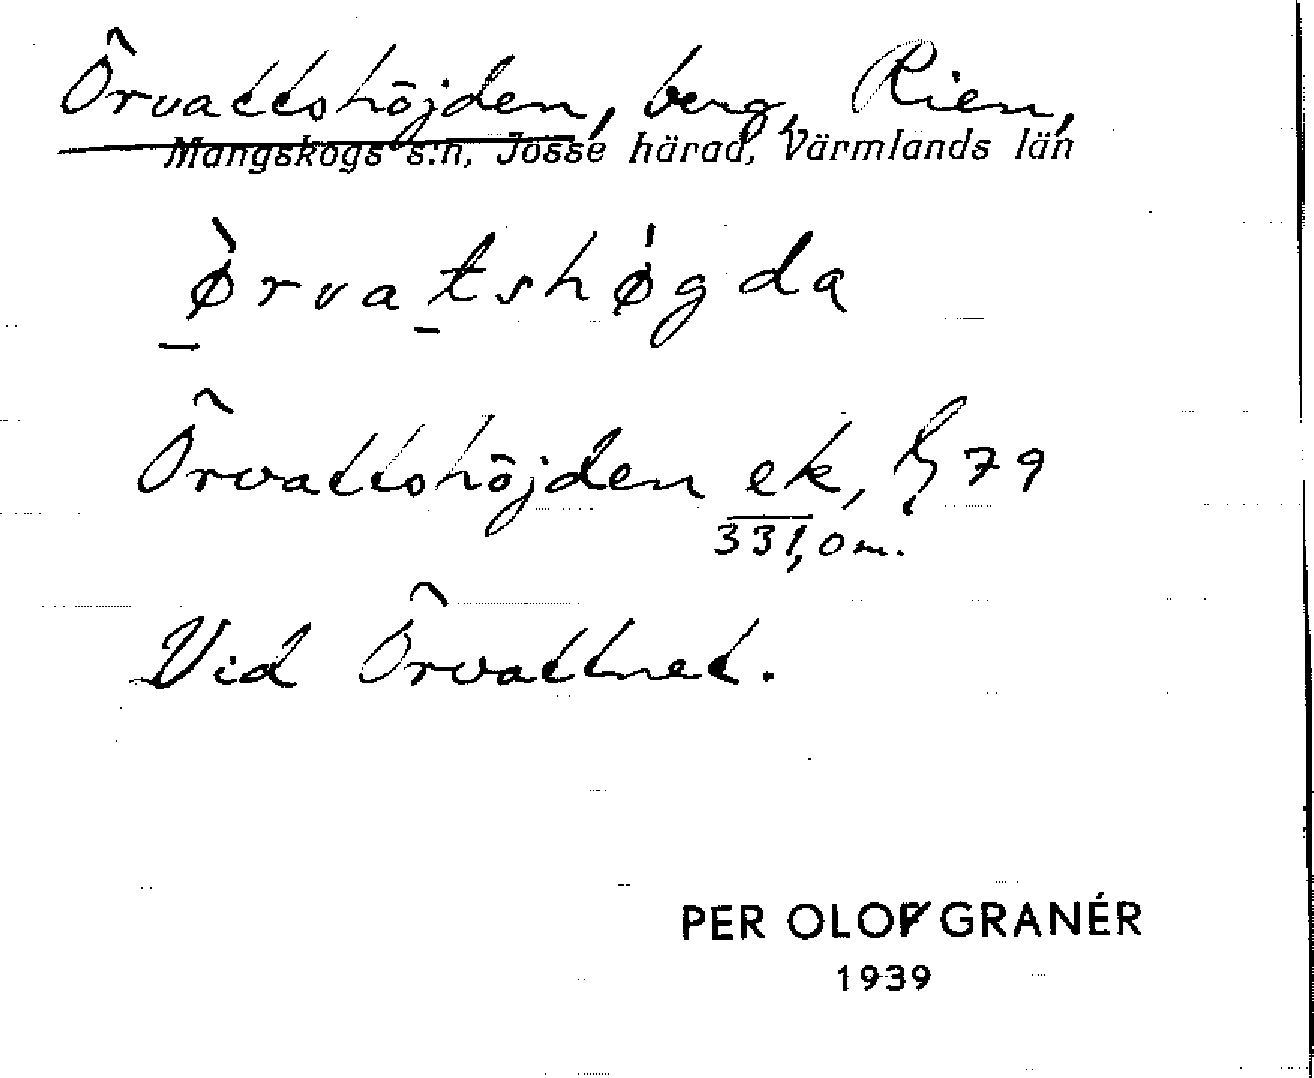 Örvattshöjden, berg, Rien,
Mangskogs s:n, Jösse härad, Värmlands län
ø̀rvatshø̍gda
Örvattshöjden ek, 79
331,0 m.
Vid Örvattnet.
PER OLOF GRANÉR
1939